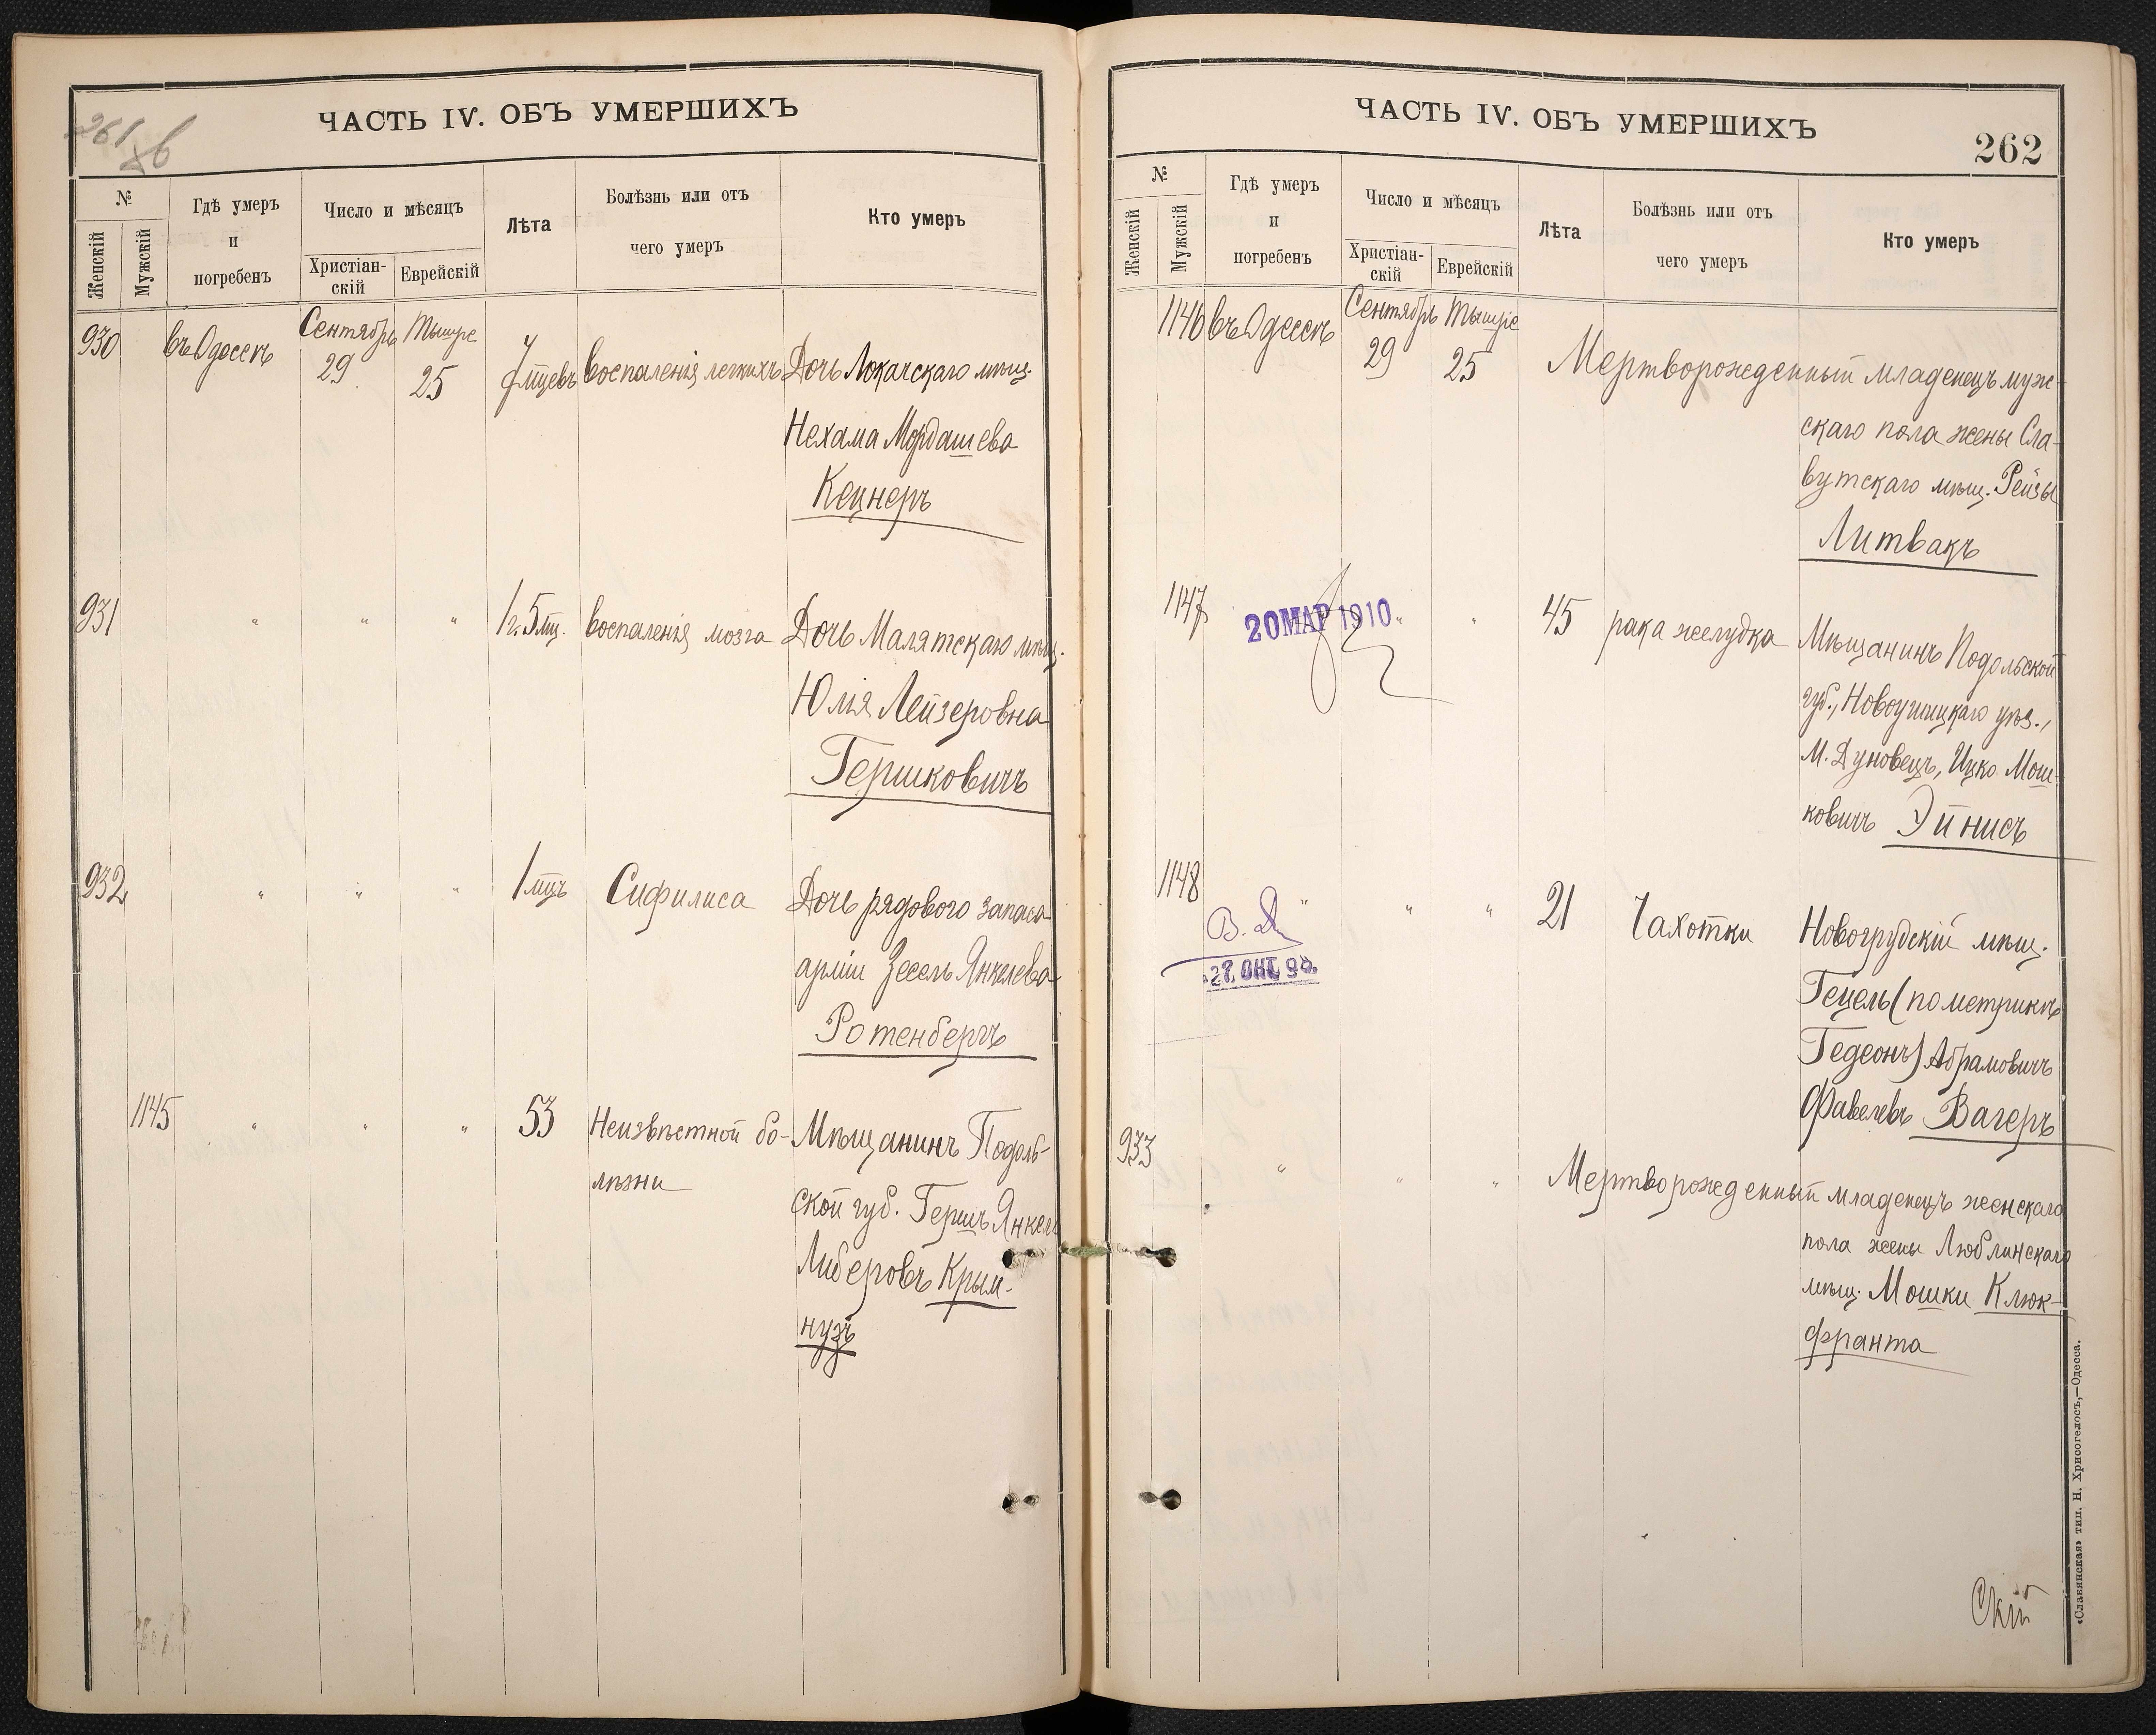 261 об
ЧАСТЬ IV. ОБЪ УМЕРШИХЪ
№
Женскій
Мужскій
Гдѣ умеръ
и
погребенъ
Число и мѣсяцъ
Христіан-
скій
Еврейскій
Лѣта
Болѣзнь или отъ
чего умеръ
Кто умеръ
930 въ Одессѣ Сентябрь 29 Тишре 25 7 мцевъ воспаленія легкихъ Дочь Локачскаго мѣщ.
Нехама Мордашева
Кецнеръ
931 " " " 1 г. 5 мц. воспаленія мозга Дочь Малятскаго мѣщ.
Юлія Лейзеровна
Гершковичъ
932 " " " 1 мцъ Сифилиса Дочь рядового запаса
арміи Зесель Янкелева
Ротенбергъ
1145 " " " 53 Неизвѣстной бо- Мѣщанинъ Подоль-
лѣзни
ской губ. Гершъ Янкель
Либеровъ Крым-
нузъ
ЧАСТЬ IV. ОБЪ УМЕРШИХЪ
262
№
Женскій
Мужскій
Гдѣ умеръ
и
погребенъ
Число и мѣсяцъ
Христіан-
скій
Еврейскій
Лѣта
Болѣзнь или отъ
чего умеръ
Кто умеръ
1146 въ Одессѣ Сентябрь 29 Тишре 25 Мертворожденный младенецъ муж-
скаго пола жены Сла-
вутскаго мѣщ. Рейзы
Литвакъ
1147 " " 45 рака желудка Мѣщанинъ Подольской
20 МАР 1910
губ., Новоушицкаго уѣз.,
М. Дуновецъ, Ицко Мош-
ковичъ Эйнисъ
1148 " " " 21 Чахотки Новогрудскій мѣщ.
27. ОКТ. 95.
Гецель (по метрикѣ
Гедеонъ) Абрамовичъ
Фавелевъ Вагеръ
933 " " " Мертворожденный младенецъ женскаго
пола жены Люблинскаго
мѣщ. Мошки Клюк-
франта
Скій
«Славянская» тип. Н. Хрисогелосъ,—Одесса.